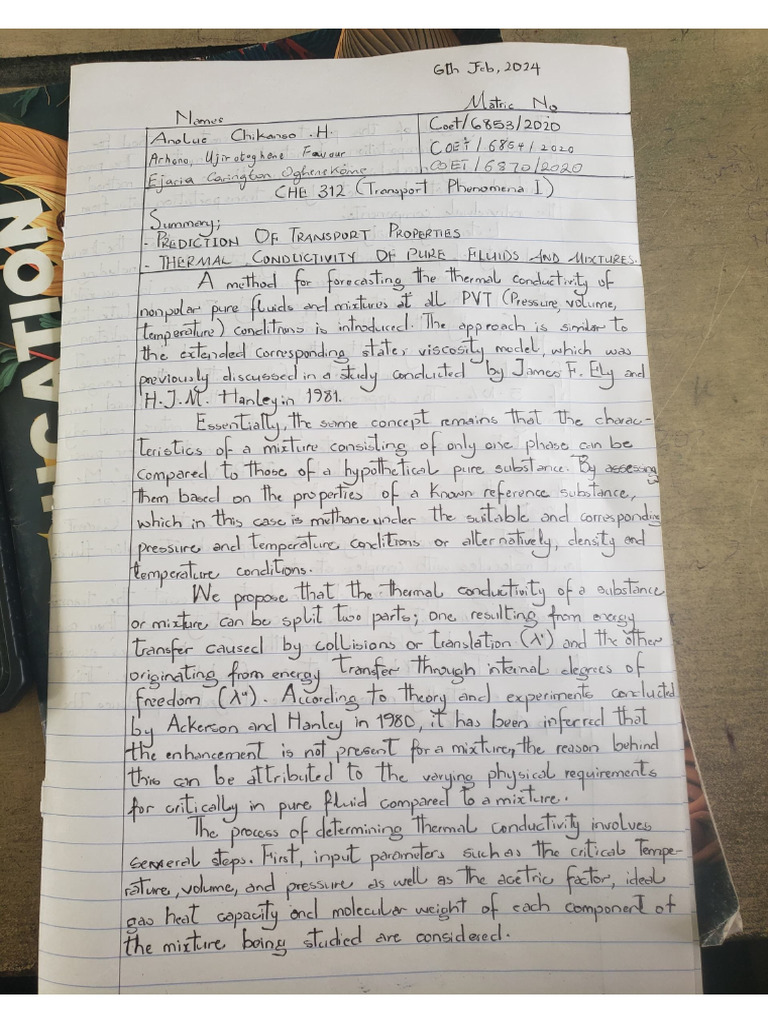 6th Feb, 2024
Names
Matric No
Anolue Chikanso .H.
Coet/6853/2020
Arhana, Ujiroteghene Favour
COET/6854/2020
Ejaria Carington Oghenekome
COET/6870/2020
CHE 312 (Transport Phenomena I)
Summary;
- PREDICTION OF TRANSPORT PROPERTIES
- THERMAL CONDUCTIVITY OF PURE FLUIDS AND MIXTURES.
A method for forecasting the thermal conductivity of
nonpolar pure fluids and mixtures at all PVT (Pressure, volume,
temperature) conditions is introduced. The approach is similar to
the extended corresponding states viscosity model, which was
previously discussed in a study conducted by James F. Ely and
H.J.M. Hanley in 1981.
Essentially, the same concept remains that the charac-
teristics of a mixture consisting of only one phase can be
compared to those of a hypothetical pure substance. By assessing
them based on the properties of a known reference substance,
which in this case is methane under the suitable and corresponding
pressure and temperature conditions or alternatively, density and
temperature conditions.
We propose that the thermal conductivity of a substance
or mixture can be split two parts; one resulting from energy
transfer caused by collisions or translation (λ') and the other
originating from energy transfer through internal degrees of
freedom (λ"). According to theory and experiments conducted
by Ackerson and Hanley in 1980, it has been inferred that
the enhancement is not present for a mixture, the reason behind
this can be attributed to the varying physical requirements
for critically in pure fluid compared to a mixture.
The process of determining thermal conductivity involves
several steps. First, input parameters such as the critical tempe-
rature, volume, and pressure as well as the acetric factor, ideal
gas heat capacity and molecular weight of each component of
the mixture being studied are considered.